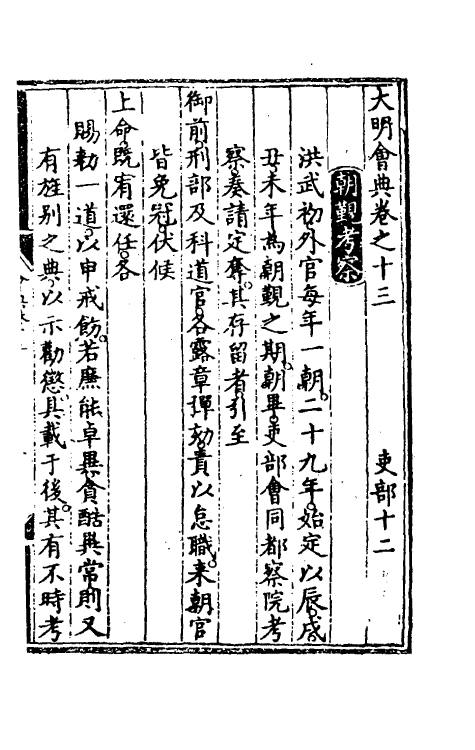 大明會典卷之十三　吏部十二
朝覲考察
洪武初外官每年一朝二十九年始定以辰戌
丑未年為朝覲之期朝畢吏部會同都察院考
察奏請定奪其存留者引至
御前刑部及科道官各露章彈劾責以怠職来朝官
皆免冠伏候
上命既宥還任各
賜勑一道以申戒飭若廉能卓異貪酷異常則又
有旌别之典以示勸懲具載于後其有不時考